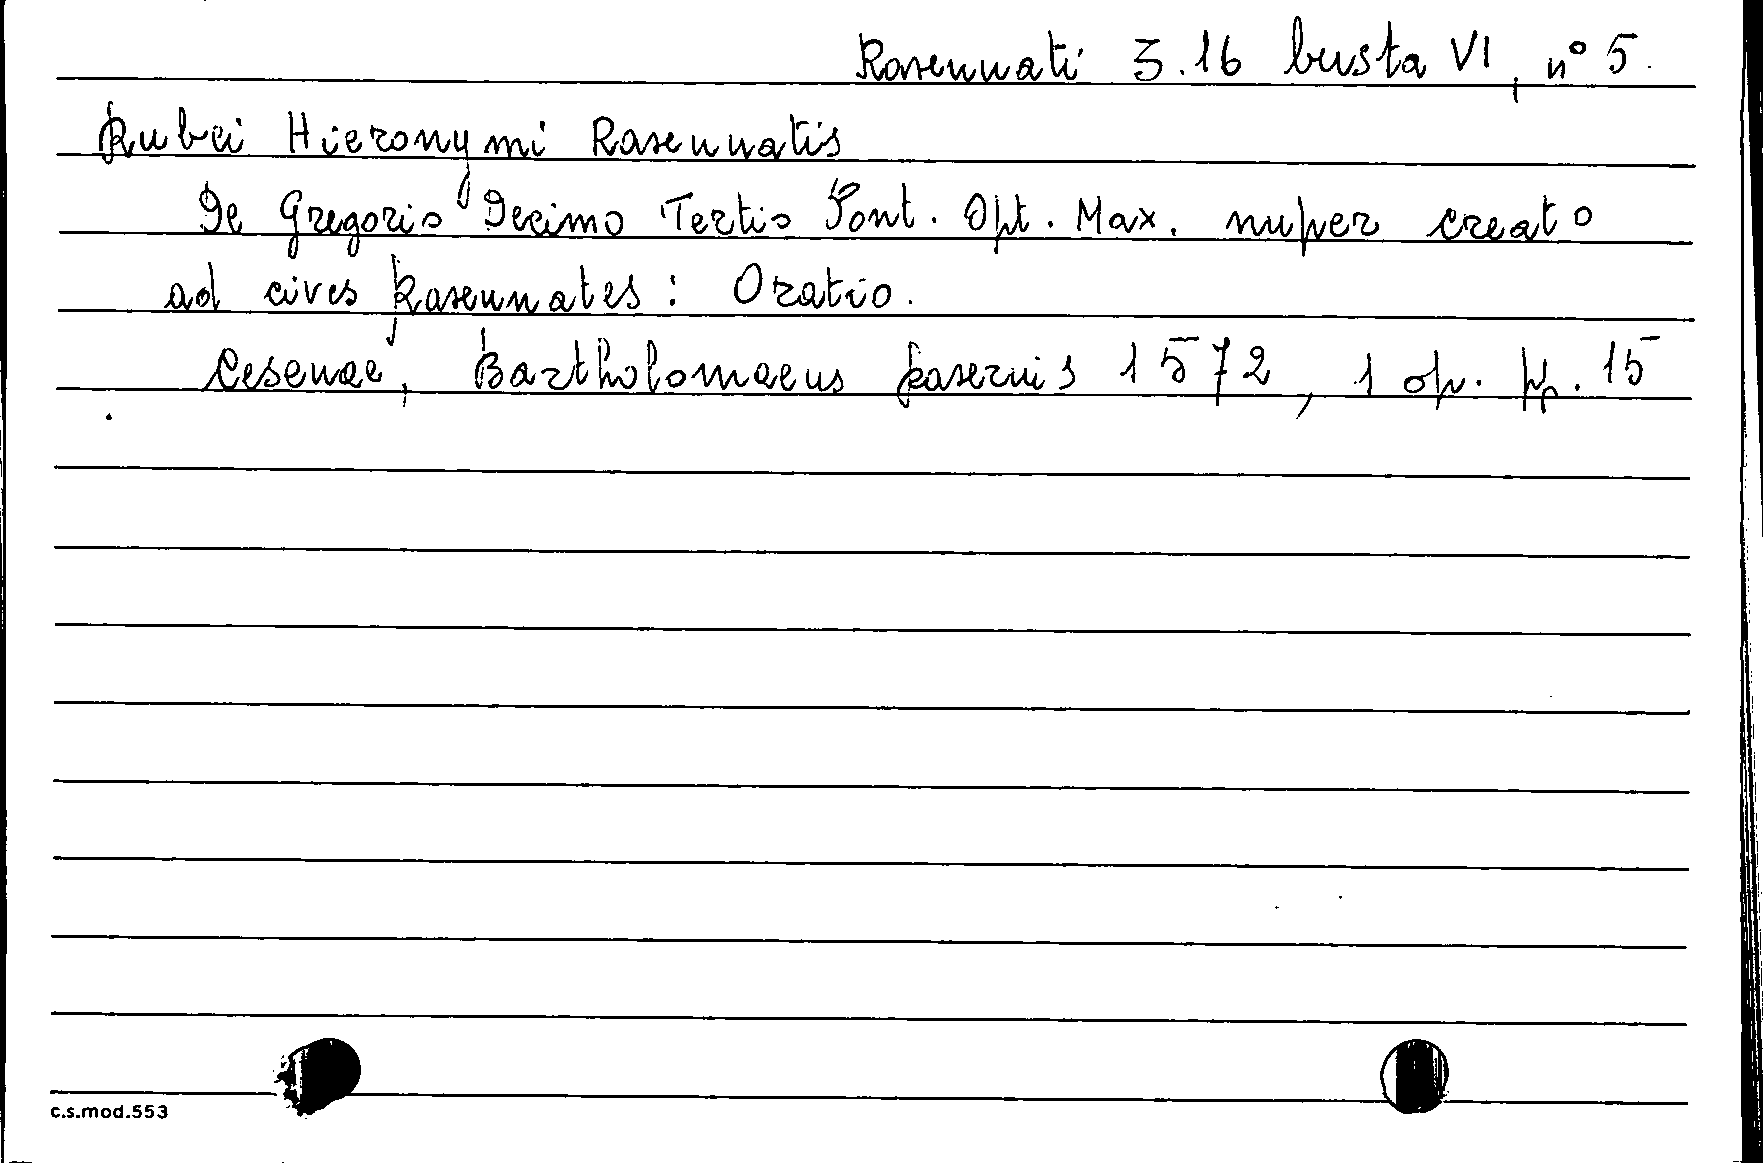 Ravennati 3.16 busta VI, n° 5.
Rubei Hieronymi Ravennatis
De Gregorio Decimo Tertio Pont. Opt. Max. nuper creato
ad cives Ravennates: Oratio.
Cesenae, Bartholomaeus Raverius 1572, 1 op. pp. 15
c.s.mod.553